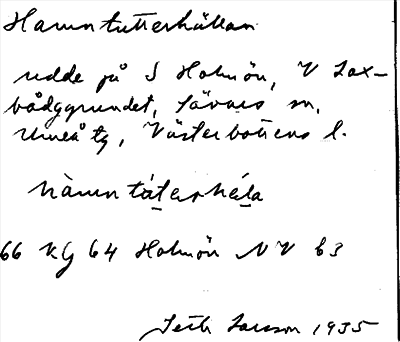 Hamntutterhällan
udde på S Holmön, V Lax-
bådgrundet, Sävars sn,
Umeå tg, Västerbottens l.
hàmntáterhéla
66 KG 64 Holmön NV b3
Seth Larsson 1935